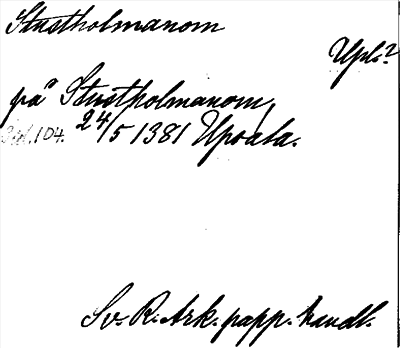 Stustholmanom
Upl.?
på Stustholmanom,
Sid. 104. 24/5 1381 Upsala.
Sv. R. Ark. papp. handl.